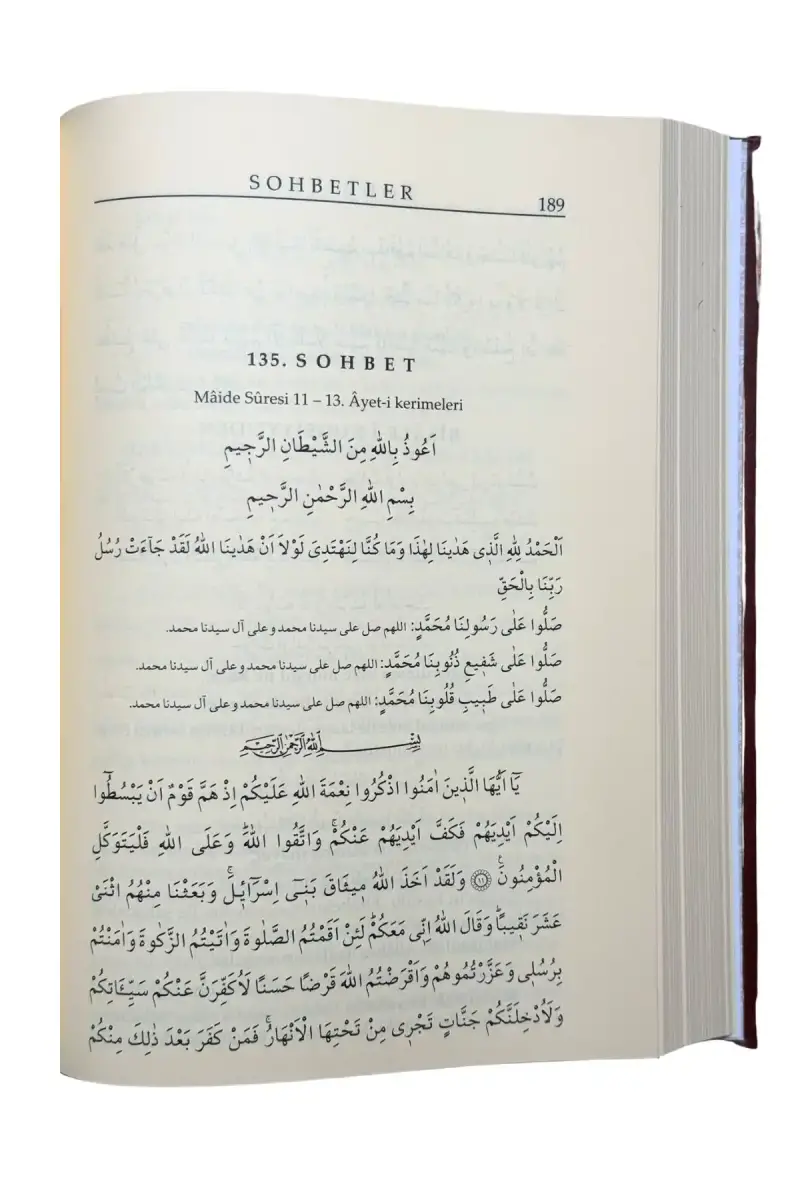 SOHBETLER
189
135. SOHBET
Mâide Sûresi 11 – 13. Âyet-i kerimeleri
اَعُوذُ بِاللّٰهِ مِنَ الشَّيْطَانِ الرَّجِيمِ
بِسْمِ اللّٰهِ الرَّحْمٰنِ الرَّحِيمِ
اَلْحَمْدُ لِلّٰهِ الَّذِى هَدٰينَا لِهٰذَا وَمَا كُنَّا لِنَهْتَدِىَ لَوْلَا اَنْ هَدٰينَا اللّٰهُ لَقَدْ جَاءَتْ رُسُلُ
رَبِّنَا بِالْحَقِّ
صَلُّوا عَلٰى رَسُولِنَا مُحَمَّدٍ: اللهم صل على سيدنا محمد وعلى آل سيدنا محمد.
صَلُّوا عَلٰى شَفِيعِ ذُنُوبِنَا مُحَمَّدٍ: اللهم صل على سيدنا محمد وعلى آل سيدنا محمد.
صَلُّوا عَلٰى طَبِيبِ قُلُوبِنَا مُحَمَّدٍ: اللهم صل على سيدنا محمد وعلى آل سيدنا محمد.
بِسْمِ اللّٰهِ الرَّحْمٰنِ الرَّحِيمِ
يَٓا اَيُّهَا الَّذِينَ اٰمَنُوا اذْكُرُوا نِعْمَةَ اللّٰهِ عَلَيْكُمْ اِذْ هَمَّ قَوْمٌ اَنْ يَبْسُطُٓوا
اِلَيْكُمْ اَيْدِيَهُمْ فَكَفَّ اَيْدِيَهُمْ عَنْكُمْۚ وَاتَّقُوا اللّٰهَۜ وَعَلَى اللّٰهِ فَلْيَتَوَكَّلِ
الْمُؤْمِنُونَ۟ ﴿١١﴾ وَلَقَدْ اَخَذَ اللّٰهُ مِيثَاقَ بَنِٓى اِسْرَٓائِلَۚ وَبَعَثْنَا مِنْهُمُ اثْنَىْ
عَشَرَ نَقِيبًاۜ وَقَالَ اللّٰهُ اِنِّى مَعَكُمْۜ لَئِنْ اَقَمْتُمُ الصَّلٰوةَ وَاٰتَيْتُمُ الزَّكٰوةَ وَاٰمَنْتُمْ
بِرُسُلِى وَعَزَّرْتُمُوهُمْ وَاَقْرَضْتُمُ اللّٰهَ قَرْضًا حَسَنًا لَاُكَفِّرَنَّ عَنْكُمْ سَيِّـَٔاتِكُمْ
وَلَاُدْخِلَنَّكُمْ جَنَّاتٍ تَجْرِى مِنْ تَحْتِهَا الْاَنْهَارُۚ فَمَنْ كَفَرَ بَعْدَ ذٰلِكَ مِنْكُمْ